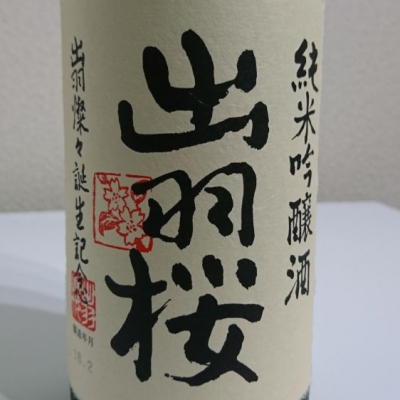 純米吟醸酒
出羽桜
出羽燦々誕生記念
製造年月
18.2